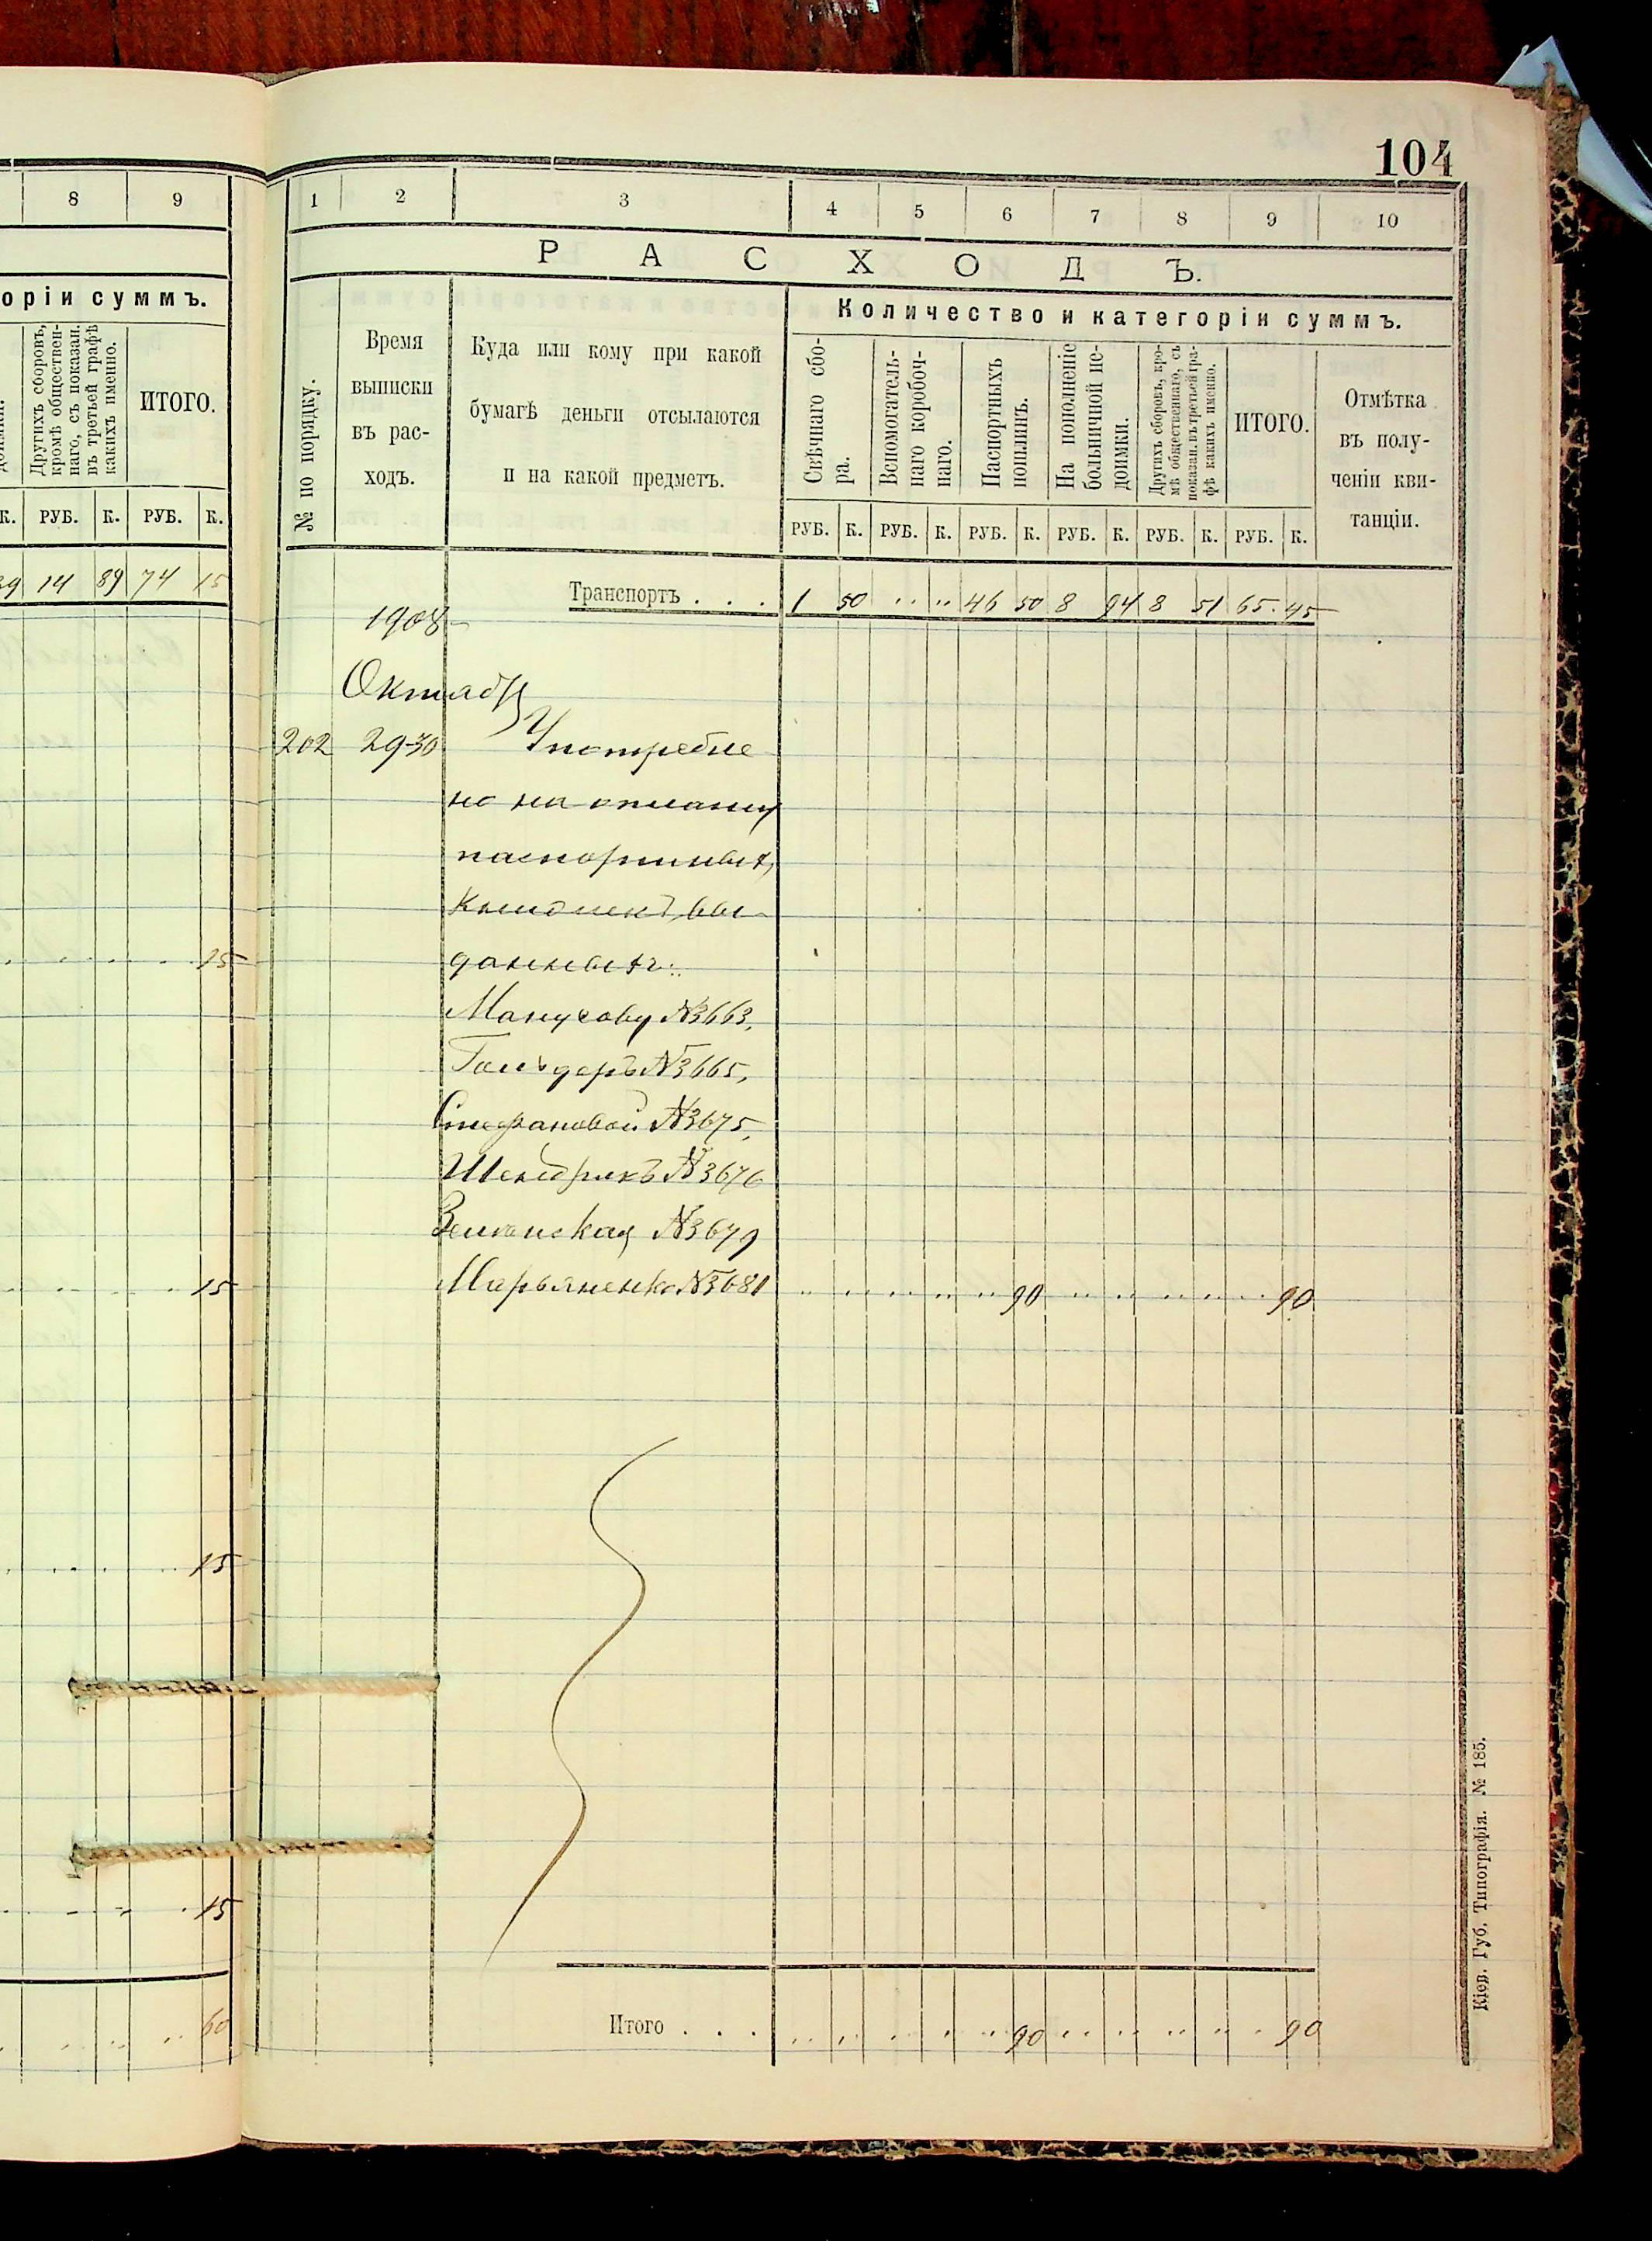 104
8 9
оріи суммъ.
Другихъ сборовъ,
кромѣ обществен-
наго, съ показан.
въ третьей графѣ
какихъ именно.
ИТОГО.
К. РУБ. К. РУБ. К.
39 14 89 74 15
15
15
15
15
60
1 2 3 4 5 6 7 8 9 10
РАСХОДЪ.
№ по порядку.
Время
выписки
въ рас-
ходъ.
Куда или кому при какой
бумагѣ деньги отсылаются
и на какой предметъ.
Количество и категоріи суммъ.
Свѣчнаго сбо-
ра.
Вспомогатель-
наго коробоч-
наго.
Паспортныхъ
пошлинъ.
На пополненіе
больничной не-
доимки.
Другихъ сборовъ, кро-
мѣ общественнаго, съ
показан. въ третьей гра-
фѣ какихъ именно.
ИТОГО.
Отмѣтка
въ полу-
ченіи кви-
танціи.
РУБ. К. РУБ. К. РУБ. К. РУБ. К. РУБ. К. РУБ. К.
Транспортъ . . . 1 50 .. .. 46 50 8 94 8 51 65 45
1908
Октябрь
202 29-30 Употребле
но на оплату
паспортныхъ
книжекъ, вы-
данныхъ:
Манусову №3663,
Гольдеръ №3665,
Стефановой №3675,
Шендрикъ №3676
№3679
Марьяненко №3681 90 90
Итого . . . 90 90
Кіев. Губ. Типографія. № 185.